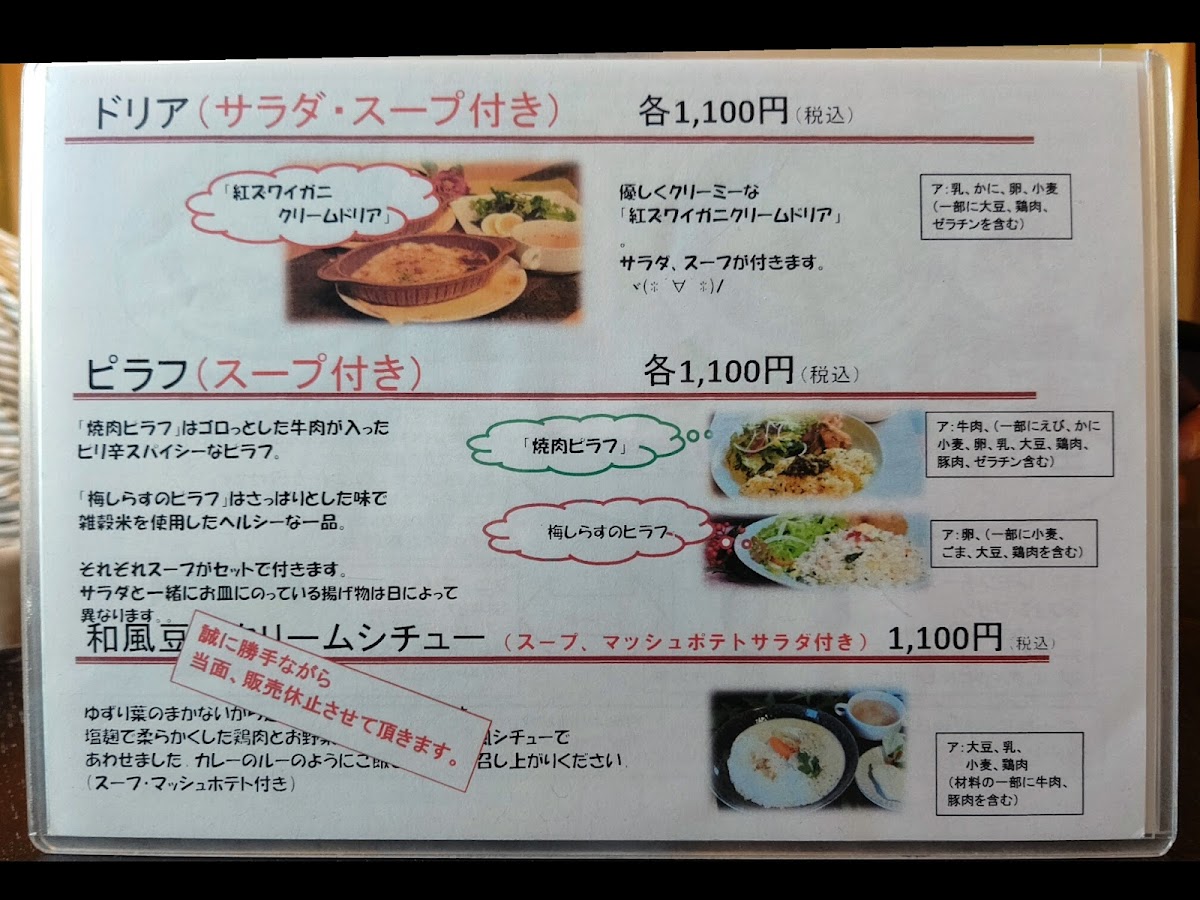 ドリア(サラダ・スープ付き) 各1,100円(税込)
「紅ズワイガニ
クリームドリア」
優しくクリーミーな
「紅ズワイガニクリームドリア」
。
サラダ、スープが付きます。
ヾ(※ ∀ ※)/
ア:乳、かに、卵、小麦
(一部に大豆、鶏肉、
ゼラチンを含む)
ピラフ(スープ付き) 各1,100円(税込)
「焼肉ピラフ」はゴロっとした牛肉が入った
ピリ辛スパイシーなピラフ。
「梅しらすのピラフ」はさっぱりとした味で
雑穀米を使用したヘルシーな一品。
それぞれスープがセットで付きます。
サラダと一緒にお皿にのっている揚げ物は日によって
異なります。。
「焼肉ピラフ」
梅しらすのピラフ
ア:牛肉、(一部にえび、かに
小麦、卵、乳、大豆、鶏肉、
豚肉、ゼラチン含む)
ア:卵、(一部に小麦、
ごま、大豆、鶏肉を含む)
和風豆 リームシチュー (スープ、マッシュポテトサラダ付き) 1,100円(税込)
誠に勝手ながら
当面、販売休止させて頂きます。
ゆずり葉のまかないから
塩麹で柔らかくした鶏肉とお野 シチューで
あわせました カレーのルーのようにご飯 召し上がりください
(スープ・マッシュポテト付き)
ア:大豆、乳、
小麦、鶏肉
(材料の一部に牛肉、
豚肉を含む)